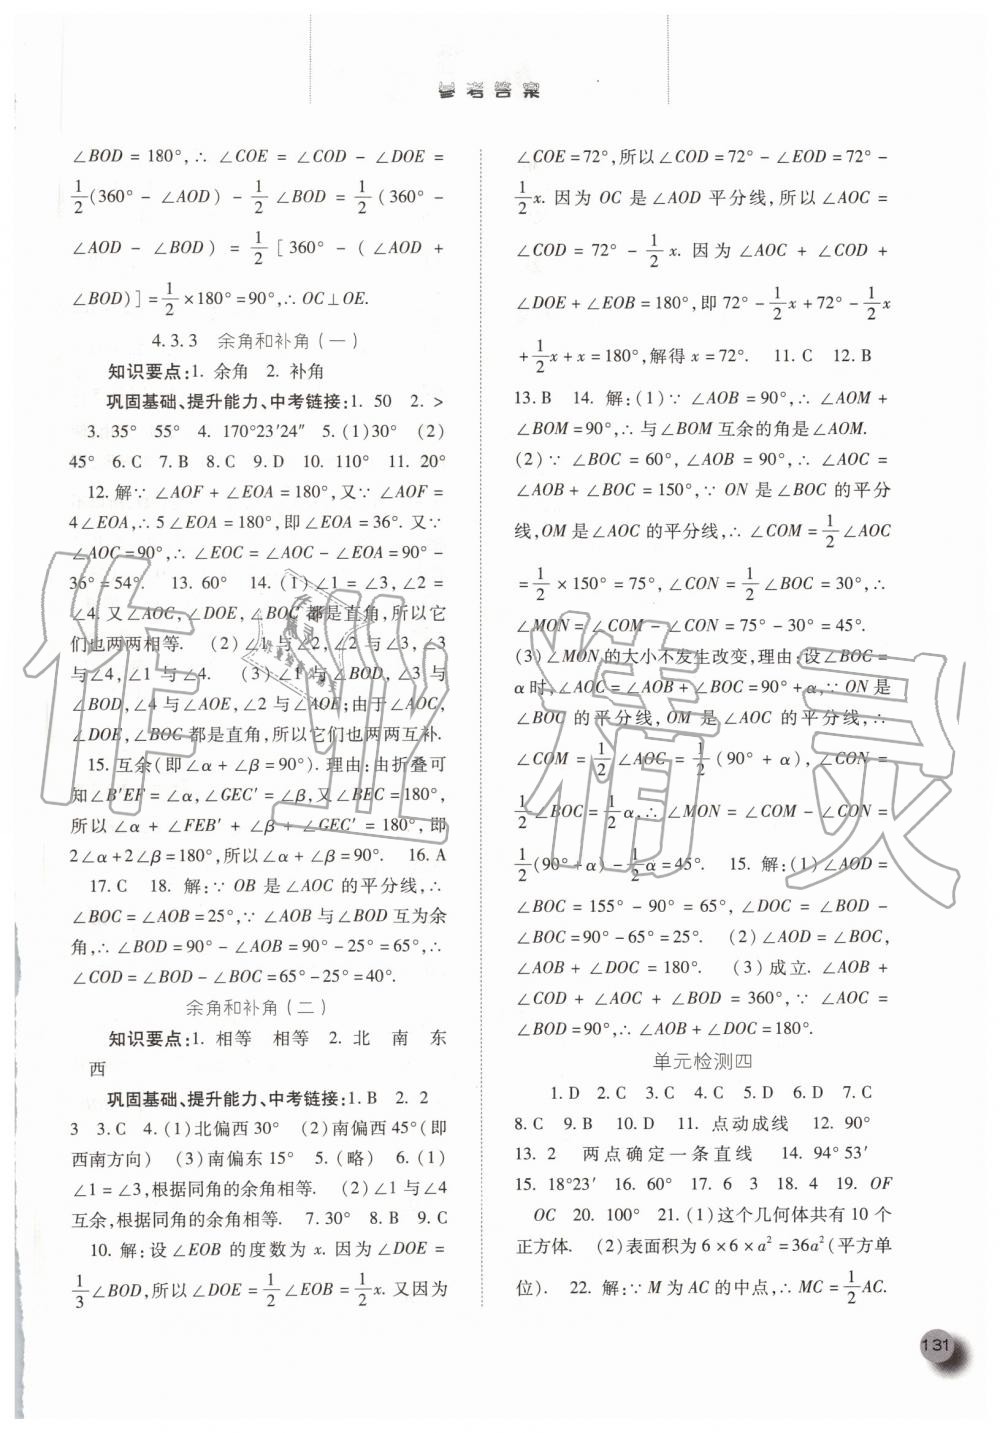 参考答案
∠BOD = 180°,∴ ∠COE = ∠COD - ∠DOE =
1/2(360° - ∠AOD) - 1/2 ∠BOD = 1/2 (360° -
∠AOD - ∠BOD) = 1/2 [360° - (∠AOD +
∠BOD)] = 1/2 × 180° = 90°,∴ OC⊥OE.
4.3.3 余角和补角(一)
知识要点:1. 余角 2. 补角
巩固基础、提升能力、中考链接:1. 50 2. >
3. 35° 55° 4. 170°23′24″ 5. (1)30° (2)
45° 6. C 7. B 8. C 9. D 10. 110° 11. 20°
12. 解∵ ∠AOF + ∠EOA = 180°,又∵ ∠AOF =
4∠EOA,∴ 5∠EOA = 180°,即∠EOA = 36°. 又∵
∠AOC = 90°,∴ ∠EOC = ∠AOC - ∠EOA = 90° -
36° = 54°. 13. 60° 14. (1)∠1 = ∠3,∠2 =
∠4. 又∠AOC,∠DOE,∠BOC 都是直角,所以它
们也两两相等. (2)∠1 与∠2,∠2 与∠3,∠3
与∠4,∠1 与∠4. (3)∠1 与∠BOD,∠3 与
∠BOD,∠4 与∠AOE,∠2 与∠AOE;由于∠AOC,
∠DOE,∠BOC 都是直角,所以它们也两两互补.
15. 互余(即∠α + ∠β = 90°). 理由:由折叠可
知∠B′EF = ∠α,∠GEC′ = ∠β,又∠BEC = 180°,
所以∠α + ∠FEB′ + ∠β + ∠GEC′ = 180°,即
2∠α + 2∠β = 180°,所以∠α + ∠β = 90°. 16. A
17. C 18. 解:∵ OB 是∠AOC 的平分线,∴
∠BOC = ∠AOB = 25°,∵ ∠AOB 与∠BOD 互为余
角,∴ ∠BOD = 90° - ∠AOB = 90° - 25° = 65°,∴
∠COD = ∠BOD - ∠BOC = 65° - 25° = 40°.
余角和补角(二)
知识要点:1. 相等 相等 2. 北 南 东
西
巩固基础、提升能力、中考链接:1. B 2. 2
3 3. C 4. (1)北偏西 30° (2)南偏西 45°(即
西南方向) (3)南偏东 15° 5. (略) 6. (1)
∠1 = ∠3,根据同角的余角相等. (2)∠1 与∠4
互余,根据同角的余角相等. 7. 30° 8. B 9. C
10. 解:设∠EOB 的度数为 x. 因为∠DOE =
1/3∠BOD,所以∠DOE = 1/2∠EOB = 1/2x. 又因为
∠COE = 72°,所以∠COD = 72° - ∠EOD = 72° -
1/2x. 因为 OC 是∠AOD 平分线,所以∠AOC =
∠COD = 72° - 1/2x. 因为∠AOC + ∠COD +
∠DOE + ∠EOB = 180°,即 72° - 1/2x + 72° - 1/2x
+ 1/2x + x = 180°,解得 x = 72°. 11. C 12. B
13. B 14. 解:(1)∵ ∠AOB = 90°,∴ ∠AOM +
∠BOM = 90°,∴ 与∠BOM 互余的角是∠AOM.
(2)∵ ∠BOC = 60°,∠AOB = 90°,∴ ∠AOC =
∠AOB + ∠BOC = 150°,∵ ON 是∠BOC 的平分
线,OM 是∠AOC 的平分线,∴ ∠COM = 1/2∠AOC
= 1/2 × 150° = 75°,∠CON = 1/2∠BOC = 30°,∴
∠MON = ∠COM - ∠CON = 75° - 30° = 45°.
(3)∠MON 的大小不发生改变,理由:设∠BOC =
α 时,∠AOC = ∠AOB + ∠BOC = 90° + α,∵ ON 是
∠BOC 的平分线,OM 是∠AOC 的平分线,∴
∠COM = 1/2∠AOC = 1/2(90° + α),∠CON =
1/2∠BOC = 1/2α,∴ ∠MON = ∠COM - ∠CON =
1/2(90° + α) - 1/2α = 45°. 15. 解:(1)∠AOD =
∠BOC = 155° - 90° = 65°,∠DOC = ∠BOD -
∠BOC = 90° - 65° = 25°. (2)∠AOD = ∠BOC,
∠AOB + ∠DOC = 180°. (3)成立. ∠AOB +
∠COD + ∠AOC + ∠BOD = 360°,∵ ∠AOC =
∠BOD = 90°,∴ ∠AOB + ∠DOC = 180°.
单元检测四
1. D 2. C 3. C 4. C 5. D 6. D 7. C
8. C 9. B 10. D 11. 点动成线 12. 90°
13. 2 两点确定一条直线 14. 94°53′
15. 18°23′ 16. 60° 17. 6 3 18. 4 19. OF
OC 20. 100° 21. (1)这个几何体共有 10 个
正方体. (2)表面积为 6 × 6 × a² = 36a²(平方单
位). 22. 解:∵ M 为 AC 的中点,∴ MC = 1/2AC.
131
作业精灵